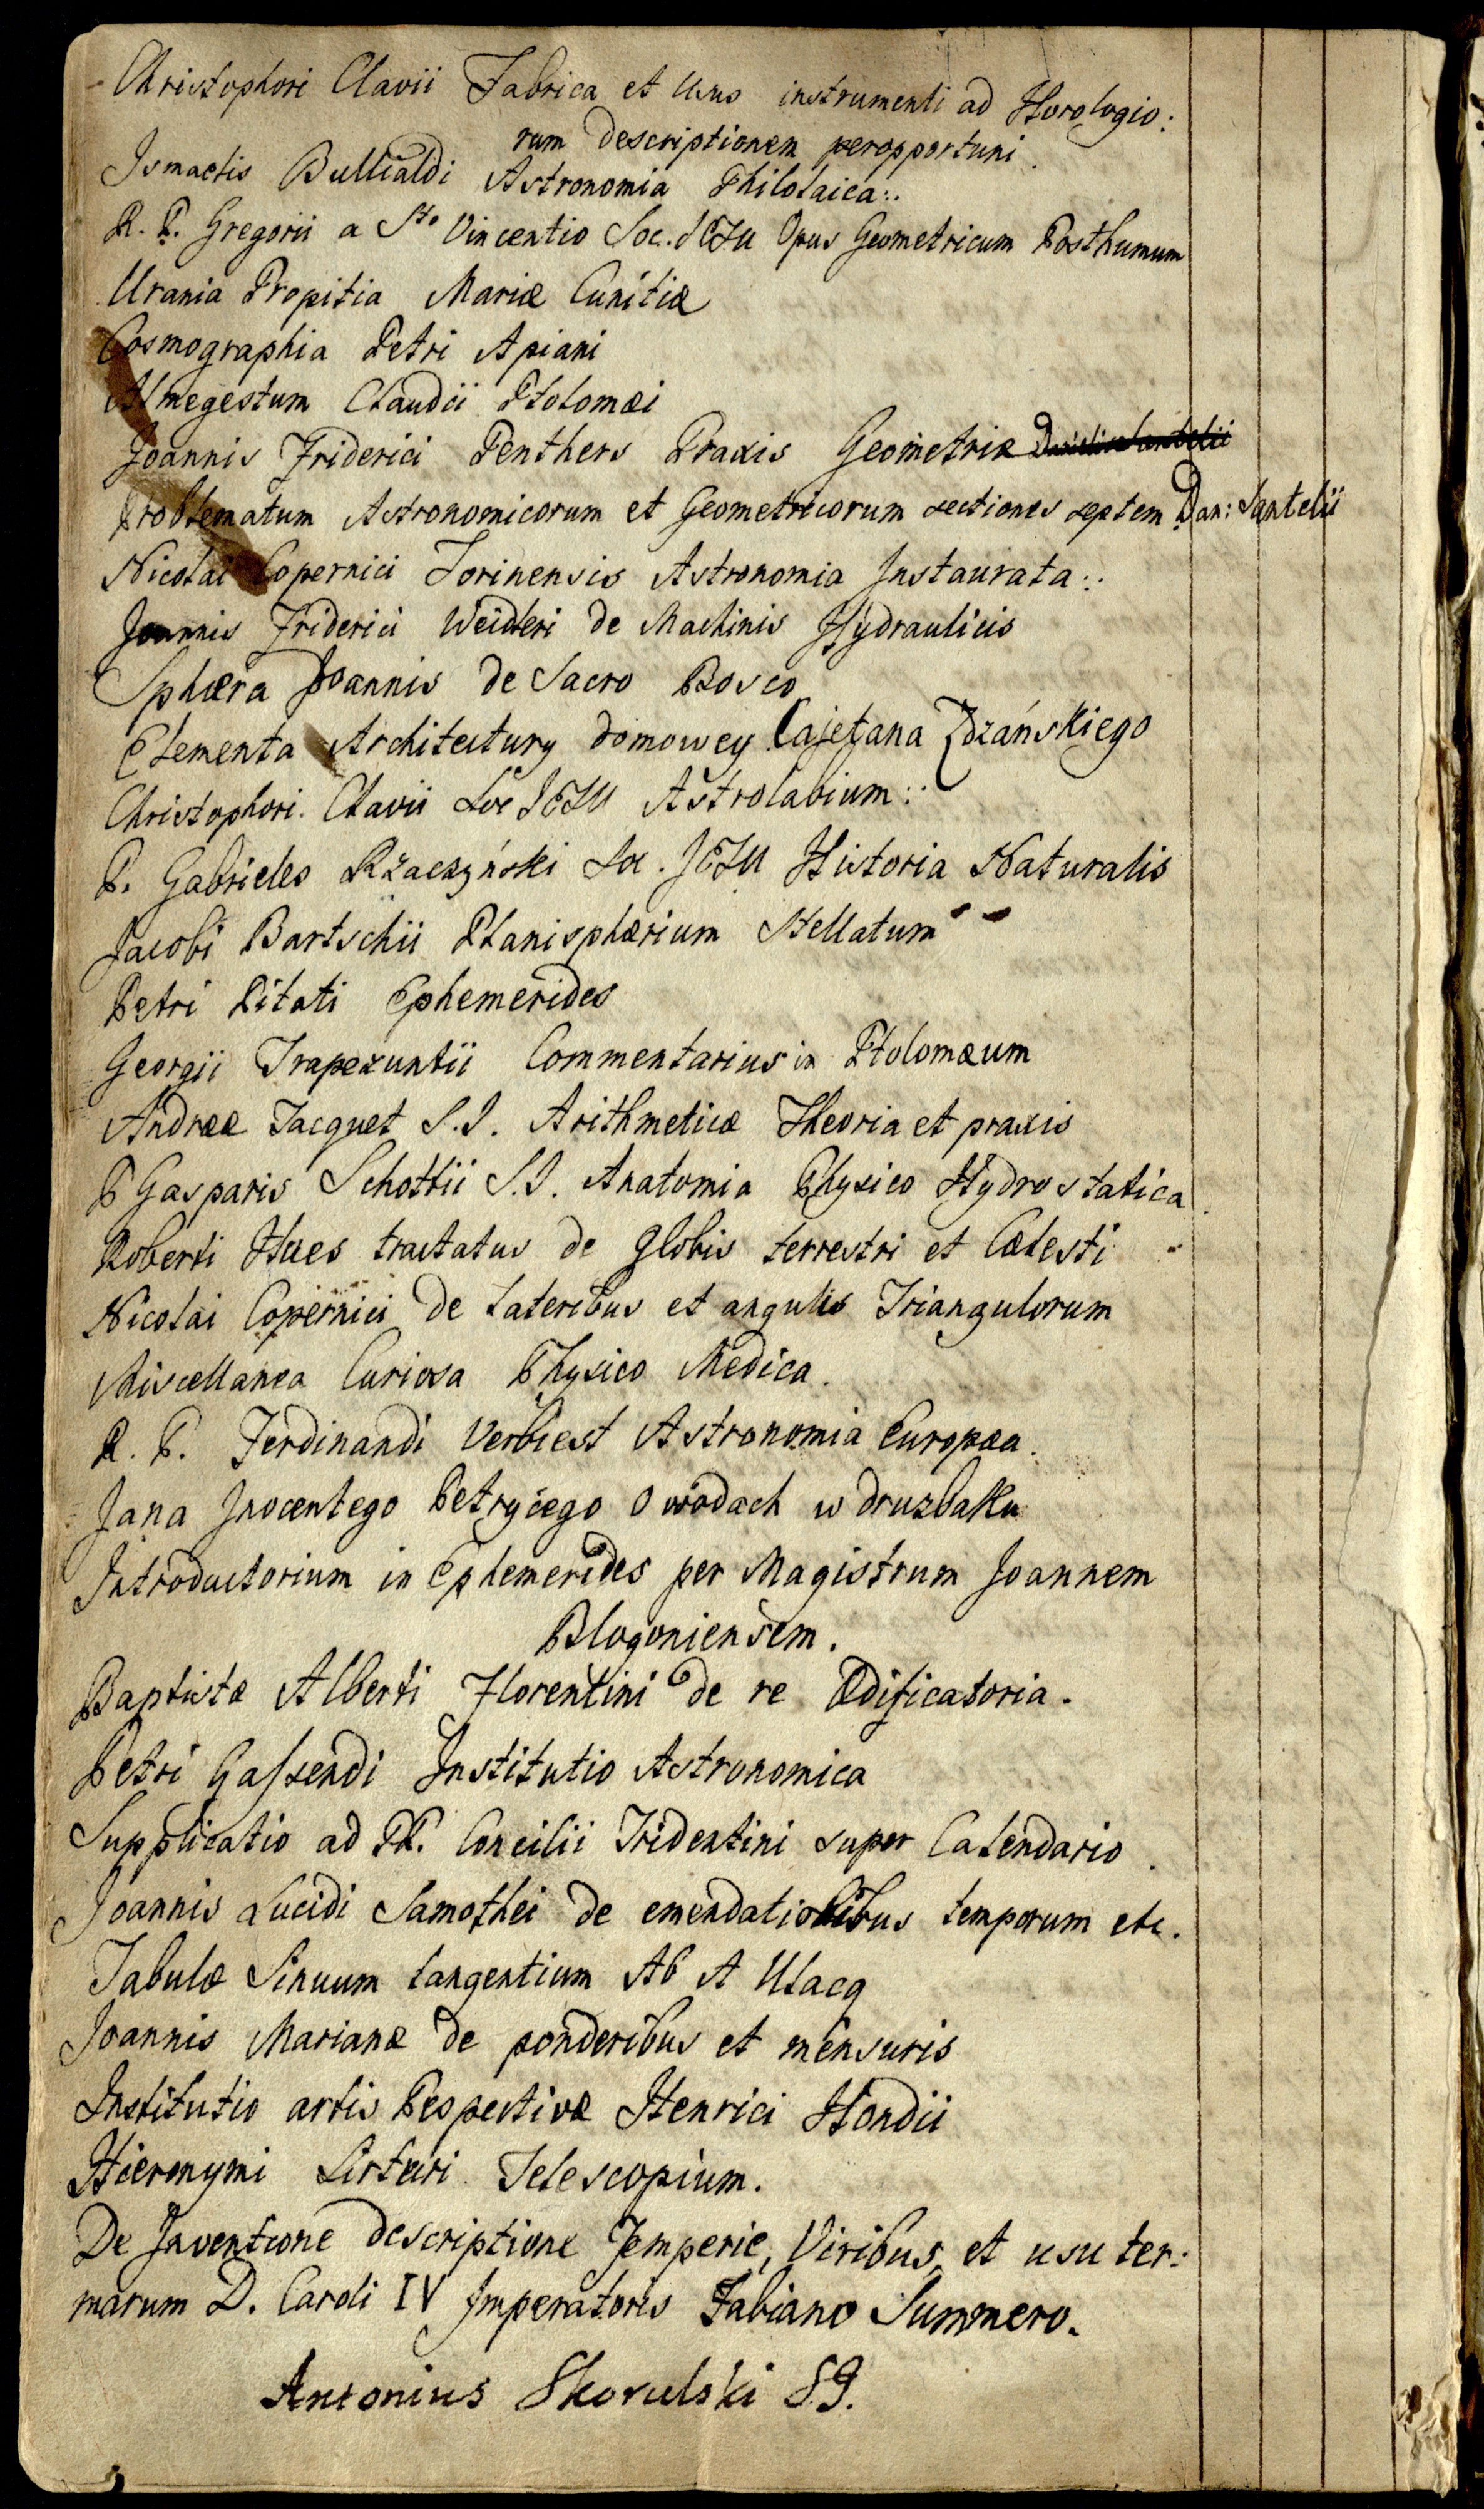 Christophori Clavii Fabrica et Usus instrumenti ad Horologio:
rum descriptionem peropportuni.
Ismaelis Bullialdi Astronomia Philolaica:.
R. P. Gregorii a Sto Vincentio Soc. JESU Opus Geometricum Posthumum
Urania Propitia Mariæ Cunitiæ
Cosmographia Petri Apiani
Almegestum Claudii Ptolomæi
Joannis Friderici Penthers Praxis Geometriæ
Problematum Astronomicorum et Geometricorum sectiones septem Dan: Santelii
Nicolai Copernici Torinensis Astronomia Instaurata:.
Joannis Friderici Weidleri de Machinis Hydraulicis
Sphæra Joannis de Sacro Bosco
Elementa Architectury domowey Cajetana Zdzańskiego
Christophori Clavii Soc JESU Astrolabium:.
P. Gabrieles Rżaczyński Soc. JESU Historia Naturalis
Jacobi Bartschii Planisphærium Stellatum
Petri Pitati Ephemerides
Georgii Trapezuntii Commentarius in Ptolomæum
Andreæ Tacquet S.J. Arithmeticæ Theoria et praxis
P Gasparis Schottii S.J. Anatomia Physico Hydrostatica.
Roberti Hues tractatus de globis terrestri et Cælesti
Nicolai Copernici de lateribus et angulis Triangulorum
Miscellanea Curiosa Physico Medica.
R. P. Ferdinandi Verbiest Astronomia Europæa.
Jana Jnocentego Petrycego o wodach w druzbaku
Introductorium in Ephemerides per Magistrum Joannem
Blogoniensem.
Baptistæ Alberti Florentini de re Ædificatoria.
Petri Gassendi Institutio Astronomica
Supplicatio ad PP. Concilii Tridentini super Calendario.
Joannis Lucidi Samothei de emendationibus temporum etc.
Tabulæ Sinuum tangentium Ab A Ulacq
Joannis Marianæ de ponderibus et mensuris
Institutio artis Pespectivæ Henrici Hondii
Hieronymi Sirturi Telescopium.
De Inventione descriptione Temperie, Viribus, et usu ter:
marum D. Caroli IV Imperatoris Fabiano Summero.
Antonius Skorulski S.J.